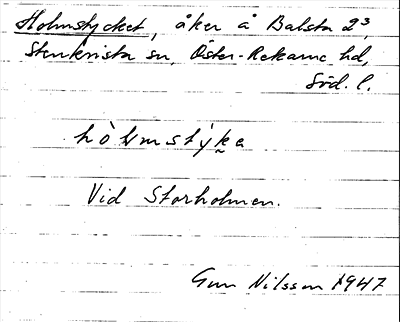 Holmstycket, åker å Balsta 2³,
Stenkvista sn, Öster-Rekarne hd,
Söd. l.
hò̀lmstý̀ka
Vid Storholmen.
Gun Nilsson 1947